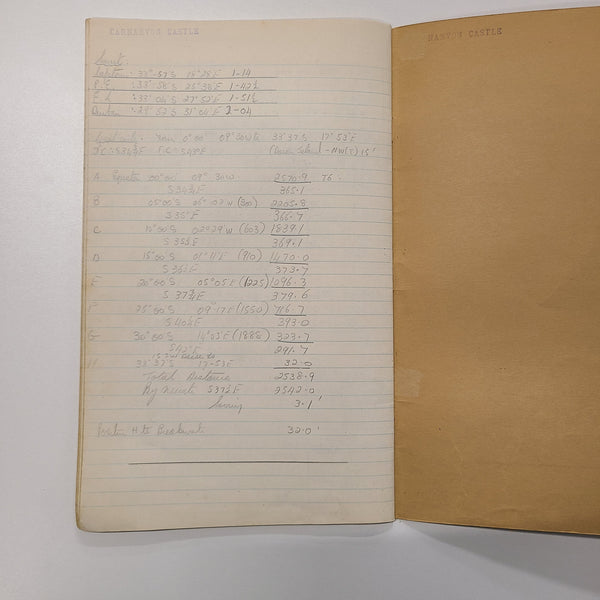 CARNARVON CASTLE
HARVON CASTLE
33°-57'S 18°28'E 1-14
P.E. :33°58'S 25°38'E 1-42½
E.L :33°04'S 27°52'E 1-51½
:29°52'S 31°04'E 2-04
from 0°00' 09°30W to 33°37'S 17°53'E
A Equator 00°00' 09° 30W 2570.9 T6.
S34¾E 365.1
B 05°00'S 06° 02W (300) 2205.8
S35°E 366.7
C 10°00'S 02°29'W (603) 1839.1
S35½E 369.1
D 15°00'S 01°11'E (910) 1470.0
S36½E 373.7
E 20°00'S 05°05'E (1225) 1096.3
S 37¾E 379.6
F 25°00'S 09°17'E (1550) 716.7
S40½E 393.0
G 30°00'S 14°02'E (1888) 323.7
S42°E 291.7
H 33°37'S 17°53'E 32.0
Total Distance 2538.9
By S37½E 2542.0
Saving 3.1'
Position H to Breakwater 32.0'